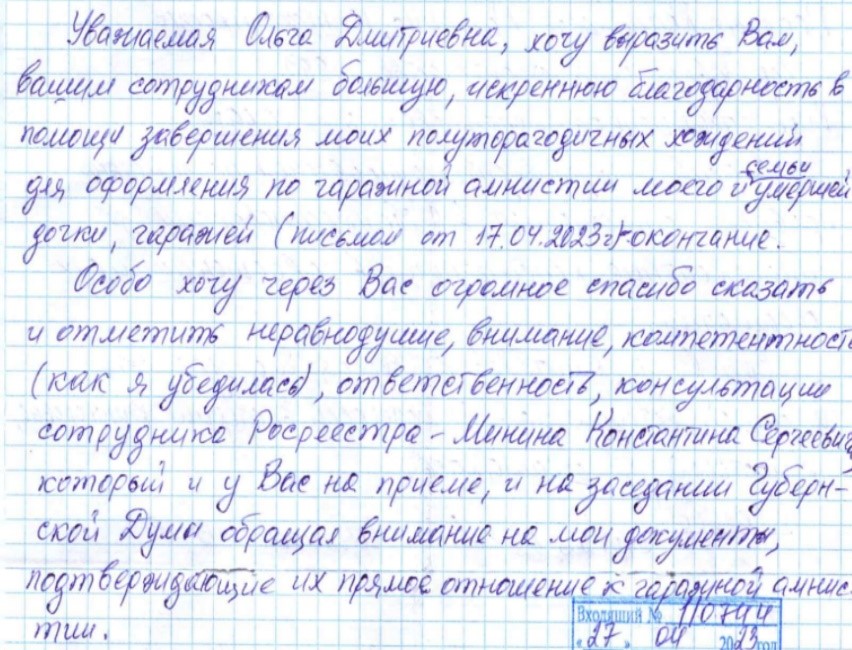 Уважаемая Ольга Дмитриевна, хочу выразить Вам,
вашим сотрудникам большую, искреннюю благодарность в
помощи завершения моих полуторагодичных хождений
для оформления по гаражной амнистии моего и умершей
семьи
дочки, гаражей (письмом от 17.04.2023г)-окончание.
Особо хочу через Вас огромное спасибо сказать
и отметить неравнодушие, внимание, компетентность
(как я убедилась), ответственность, консультации
сотрудника Росреестра - Минина Константина Сергеевича,
который и у Вас на приеме, и на заседании Губерн-
ской Думы обращал внимание на мои документы,
подтверждающие их прямое отношение к гаражной амнис-
тии.
Входящий № 110744
"27" 04 2023 год